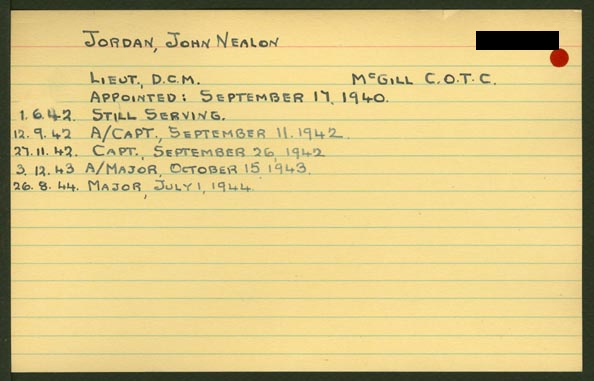 JORDAN, JOHN NEALON
LIEUT., D.C.M. McGILL C.O.T.C.
APPOINTED: SEPTEMBER 17, 1940.
1.6.42. STILL SERVING.
12.9.42 A/CAPT., SEPTEMBER 11.1942.
27.11.42. CAPT., SEPTEMBER 26, 1942
3.12.43 A/MAJOR, OCTOBER 15, 1943.
26.8.44. MAJOR, JULY 1, 1944.